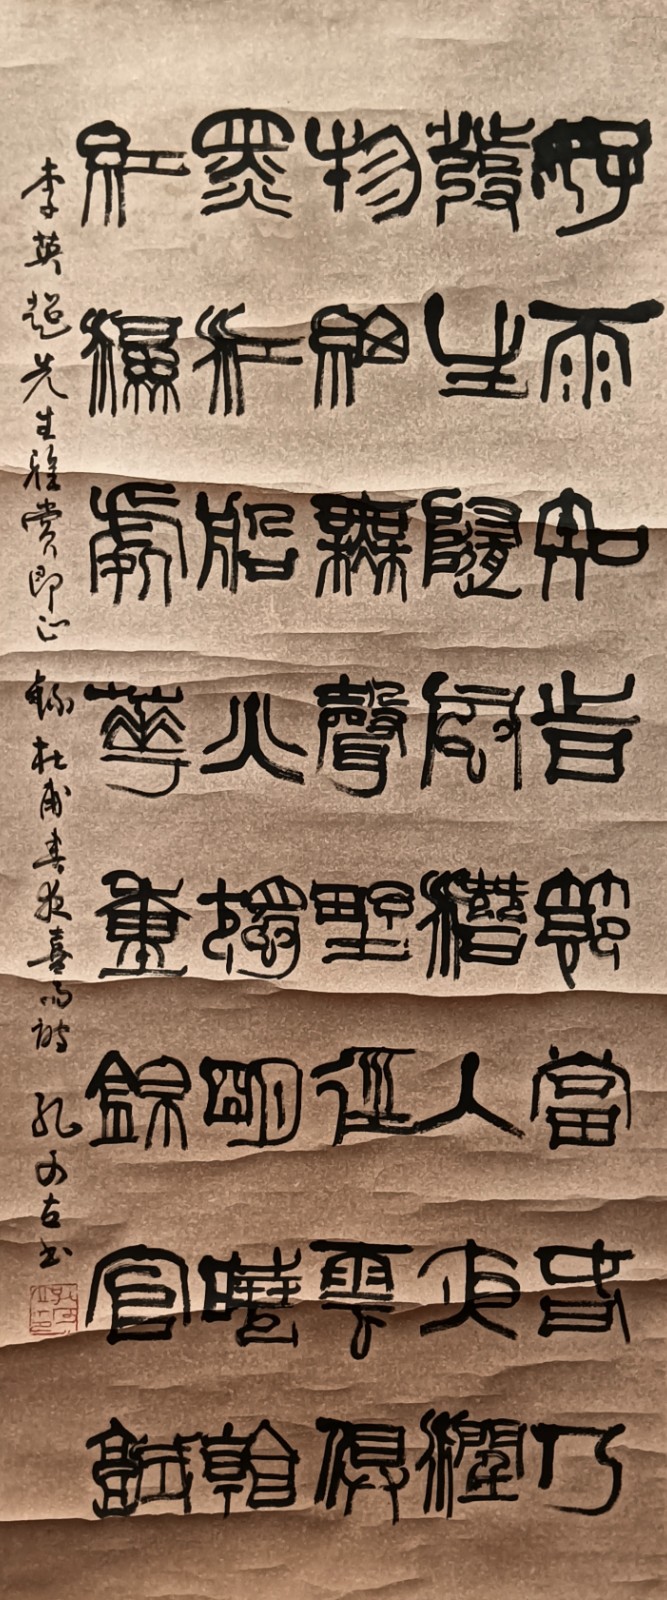 好雨知旹節當旾乃
發生隨風潛入夜潤
物細無聲野徑雲俱
黑江船火獨明曉看
紅濕處華重錦官城
李英超先生雅賞即正 錄杜甫春夜喜雨詩 孔可立书